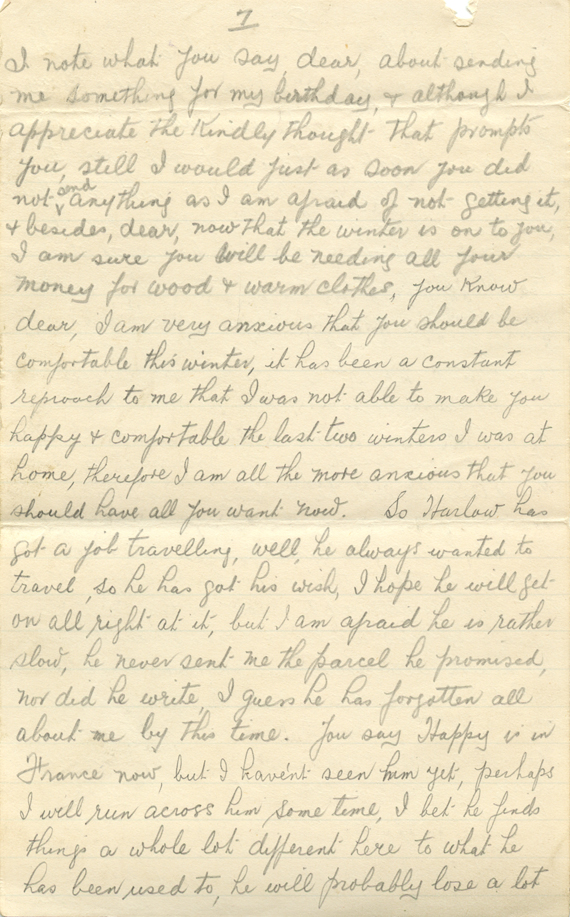 7
I note what you say, dear, about sending
me something for my birthday, & although I
appreciate the kindly thought that prompts
you, still I would just as soon you did
not send anything as I am afraid of not getting it,
& besides, dear, now that the winter is on to you,
I am sure you will be needing all your
money for wood & warm clothes, you know
dear, I am very anxious that you should be
comfortable this winter, it has been a constant
reproach to me that I was not able to make you
happy & comfortable the last two winters I was at
home, therefore I am all the more anxious that you
should have all you want now. So Harlow has
got a job travelling, well, he always wanted to
travel, so he has got his wish, I hope he will get
on all right at it, but I am afraid he is rather
slow, he never sent me the parcel he promised,
nor did he write, I guess he has forgotten all
about me by this time. You say Happy is in
France now, but I haven't seen him yet, perhaps
I will run across him some time, I bet he finds
things a whole lot different here to what he
has been used to, he will probably lose a lot